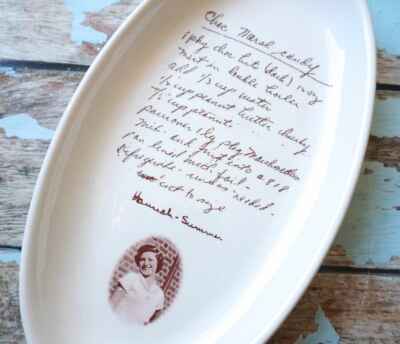 Choc Marsh. candy
1 pkg choc bits (dark)
melt in double boiler
add 1/3 cup water
1/2 cup peanut butter chunky
1/2 cup peanuts
pour over 1 lg pkg Marshmallows
Mix and put into a 9x9
pan lined with foil.
Refrigerate
cut
Hannah - Summer